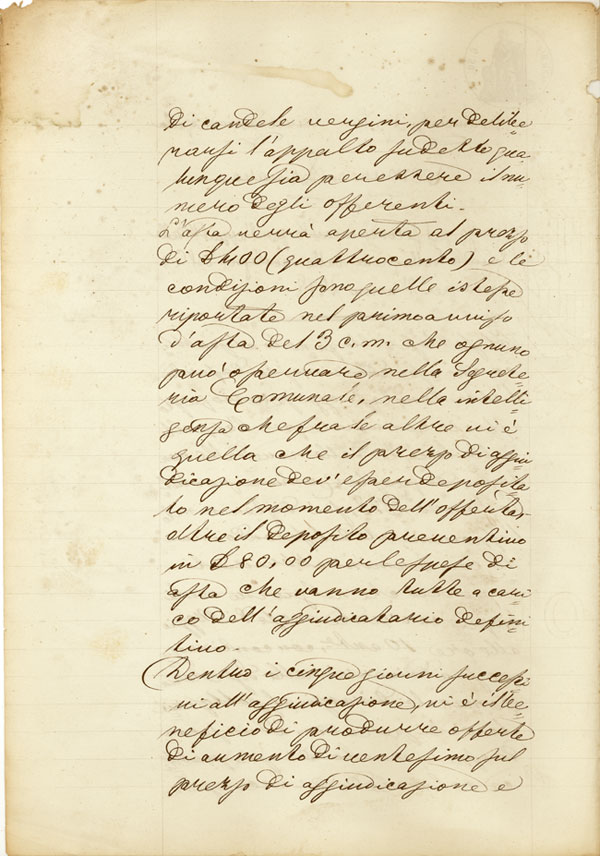 di candele vergini, per delibe=
rarsi l'appalto sudetto qua=
lunque sia per essere il nu=
mero degli offerenti.
L'asta verrà aperta al prezzo
di £ 400 (quattrocento) e le
condizioni sono quelle istesse
riportate nel primo avviso
d'asta del 3 c.m. che ognuno
può osservare nella Segrete=
ria Comunale, nella intelli=
genza che fra le altre vi è
quella che il prezzo di aggiu=
dicazione dev'esser deposita=
to nel momento dell'offerta,
oltre il deposito preventivo
in £ 80,00 per le spese di
asta che vanno tutte a cari=
co dell'aggiudicatario defini=
tivo.
Dentro i cinque giorni successi
vi all'aggiudicazione, vi è il be=
neficio di produrre offerte
di aumento di ventesimo sul
prezzo di aggiudicazione e